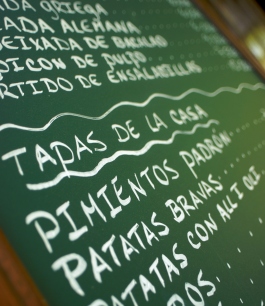 ADA GRIEGA
ADA ALEMANA
ESEIXADA DE BACALAO
PICON DE PULPO
RTIDO DE ENSALADILLAS
TAPAS DE LA CASA
PIMIENTOS PADRÓN
PATATAS BRAVAS
PATATAS CON ALL I OLI
ROS